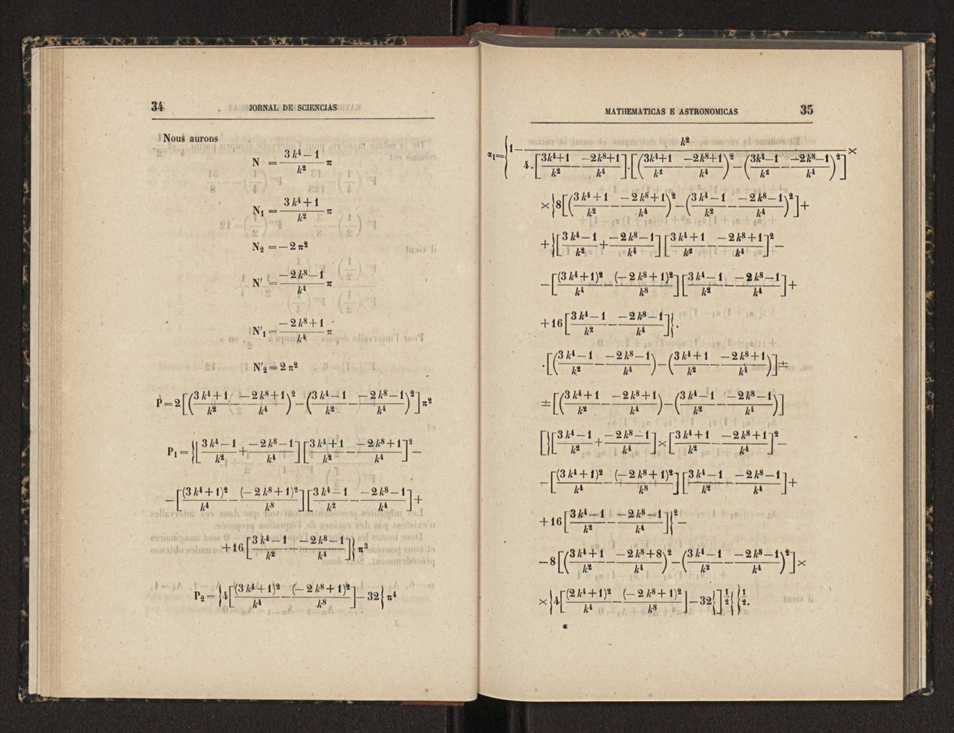 34 JORNAL DE SCIENCIAS
Nous aurons
N = \frac{3k^4-1}{k^2} π
N_1 = \frac{3k^4+1}{k^2} π
N_2 = -2π^2
N' = \frac{-2k^8-1}{k^4} π
N'_1 = \frac{-2k^8+1}{k^4} π
N'_2 = 2π^2
P = 2[(\frac{3k^4+1}{k^2} - \frac{-2k^8+1}{k^4})^2 - (\frac{3k^4-1}{k^2} - \frac{-2k^8-1}{k^4})^2] π^2
P_1 = {[\frac{3k^4-1}{k^2} + \frac{-2k^8-1}{k^4}][\frac{3k^4+1}{k^2} - \frac{-2k^8+1}{k^4}]^2 -
- [\frac{(3k^4+1)^2}{k^4} - \frac{(-2k^8+1)^2}{k^8}][\frac{3k^4-1}{k^2} - \frac{-2k^8-1}{k^4}] +
+ 16[\frac{3k^4-1}{k^2} - \frac{-2k^8-1}{k^4}]} π^3
P_2 = {4[\frac{(3k^4+1)^2}{k^4} - \frac{(-2k^8+1)^2}{k^8}] - 32} π^4
MATHEMATICAS E ASTRONOMICAS 35
α_1 = {1 - \frac{k^2}{4.[\frac{3k^4+1}{k^2} - \frac{-2k^8+1}{k^4}].[(\frac{3k^4+1}{k^2} - \frac{-2k^8+1}{k^4})^2 - (\frac{3k^4-1}{k^2} - \frac{-2k^8-1}{k^4})^2]} ×
× {8[(\frac{3k^4+1}{k^2} - \frac{-2k^8+1}{k^4})^2 - (\frac{3k^4-1}{k^2} - \frac{-2k^8-1}{k^4})^2] +
+ {[\frac{3k^4-1}{k^2} + \frac{-2k^8-1}{k^4}][\frac{3k^4+1}{k^2} - \frac{-2k^8+1}{k^4}]^2 -
- [\frac{(3k^4+1)^2}{k^4} - \frac{(-2k^8+1)^2}{k^8}][\frac{3k^4-1}{k^2} - \frac{-2k^8-1}{k^4}] +
+ 16[\frac{3k^4-1}{k^2} - \frac{-2k^8-1}{k^4}]}.
.[(\frac{3k^4-1}{k^2} - \frac{-2k^8-1}{k^4}) - (\frac{3k^4+1}{k^2} - \frac{-2k^8+1}{k^4})] ±
± [(\frac{3k^4+1}{k^2} - \frac{-2k^8+1}{k^4}) - (\frac{3k^4-1}{k^2} - \frac{-2k^8-1}{k^4})]
[}{[\frac{3k^4-1}{k^2} + \frac{-2k^8-1}{k^4}] × [\frac{3k^4+1}{k^2} - \frac{-2k^8+1}{k^4}]^2 -
- [\frac{(3k^4+1)^2}{k^4} - \frac{(-2k^8+1)^2}{k^8}][\frac{3k^4-1}{k^2} - \frac{-2k^8-1}{k^4}] +
+ 16[\frac{3k^4-1}{k^2} - \frac{-2k^8-1}{k^4}]}^2 -
- 8[(\frac{3k^4+1}{k^2} - \frac{-2k^8+8}{k^4})^2 - (\frac{3k^4-1}{k^2} - \frac{-2k^8-1}{k^4})^2] ×
× {4[\frac{(2k^4+1)^2}{k^4} - \frac{(-2k^8+1)^2}{k^8}] - 32{]^{\frac{1}{2}}{ }^{\frac{1}{2}}.
*